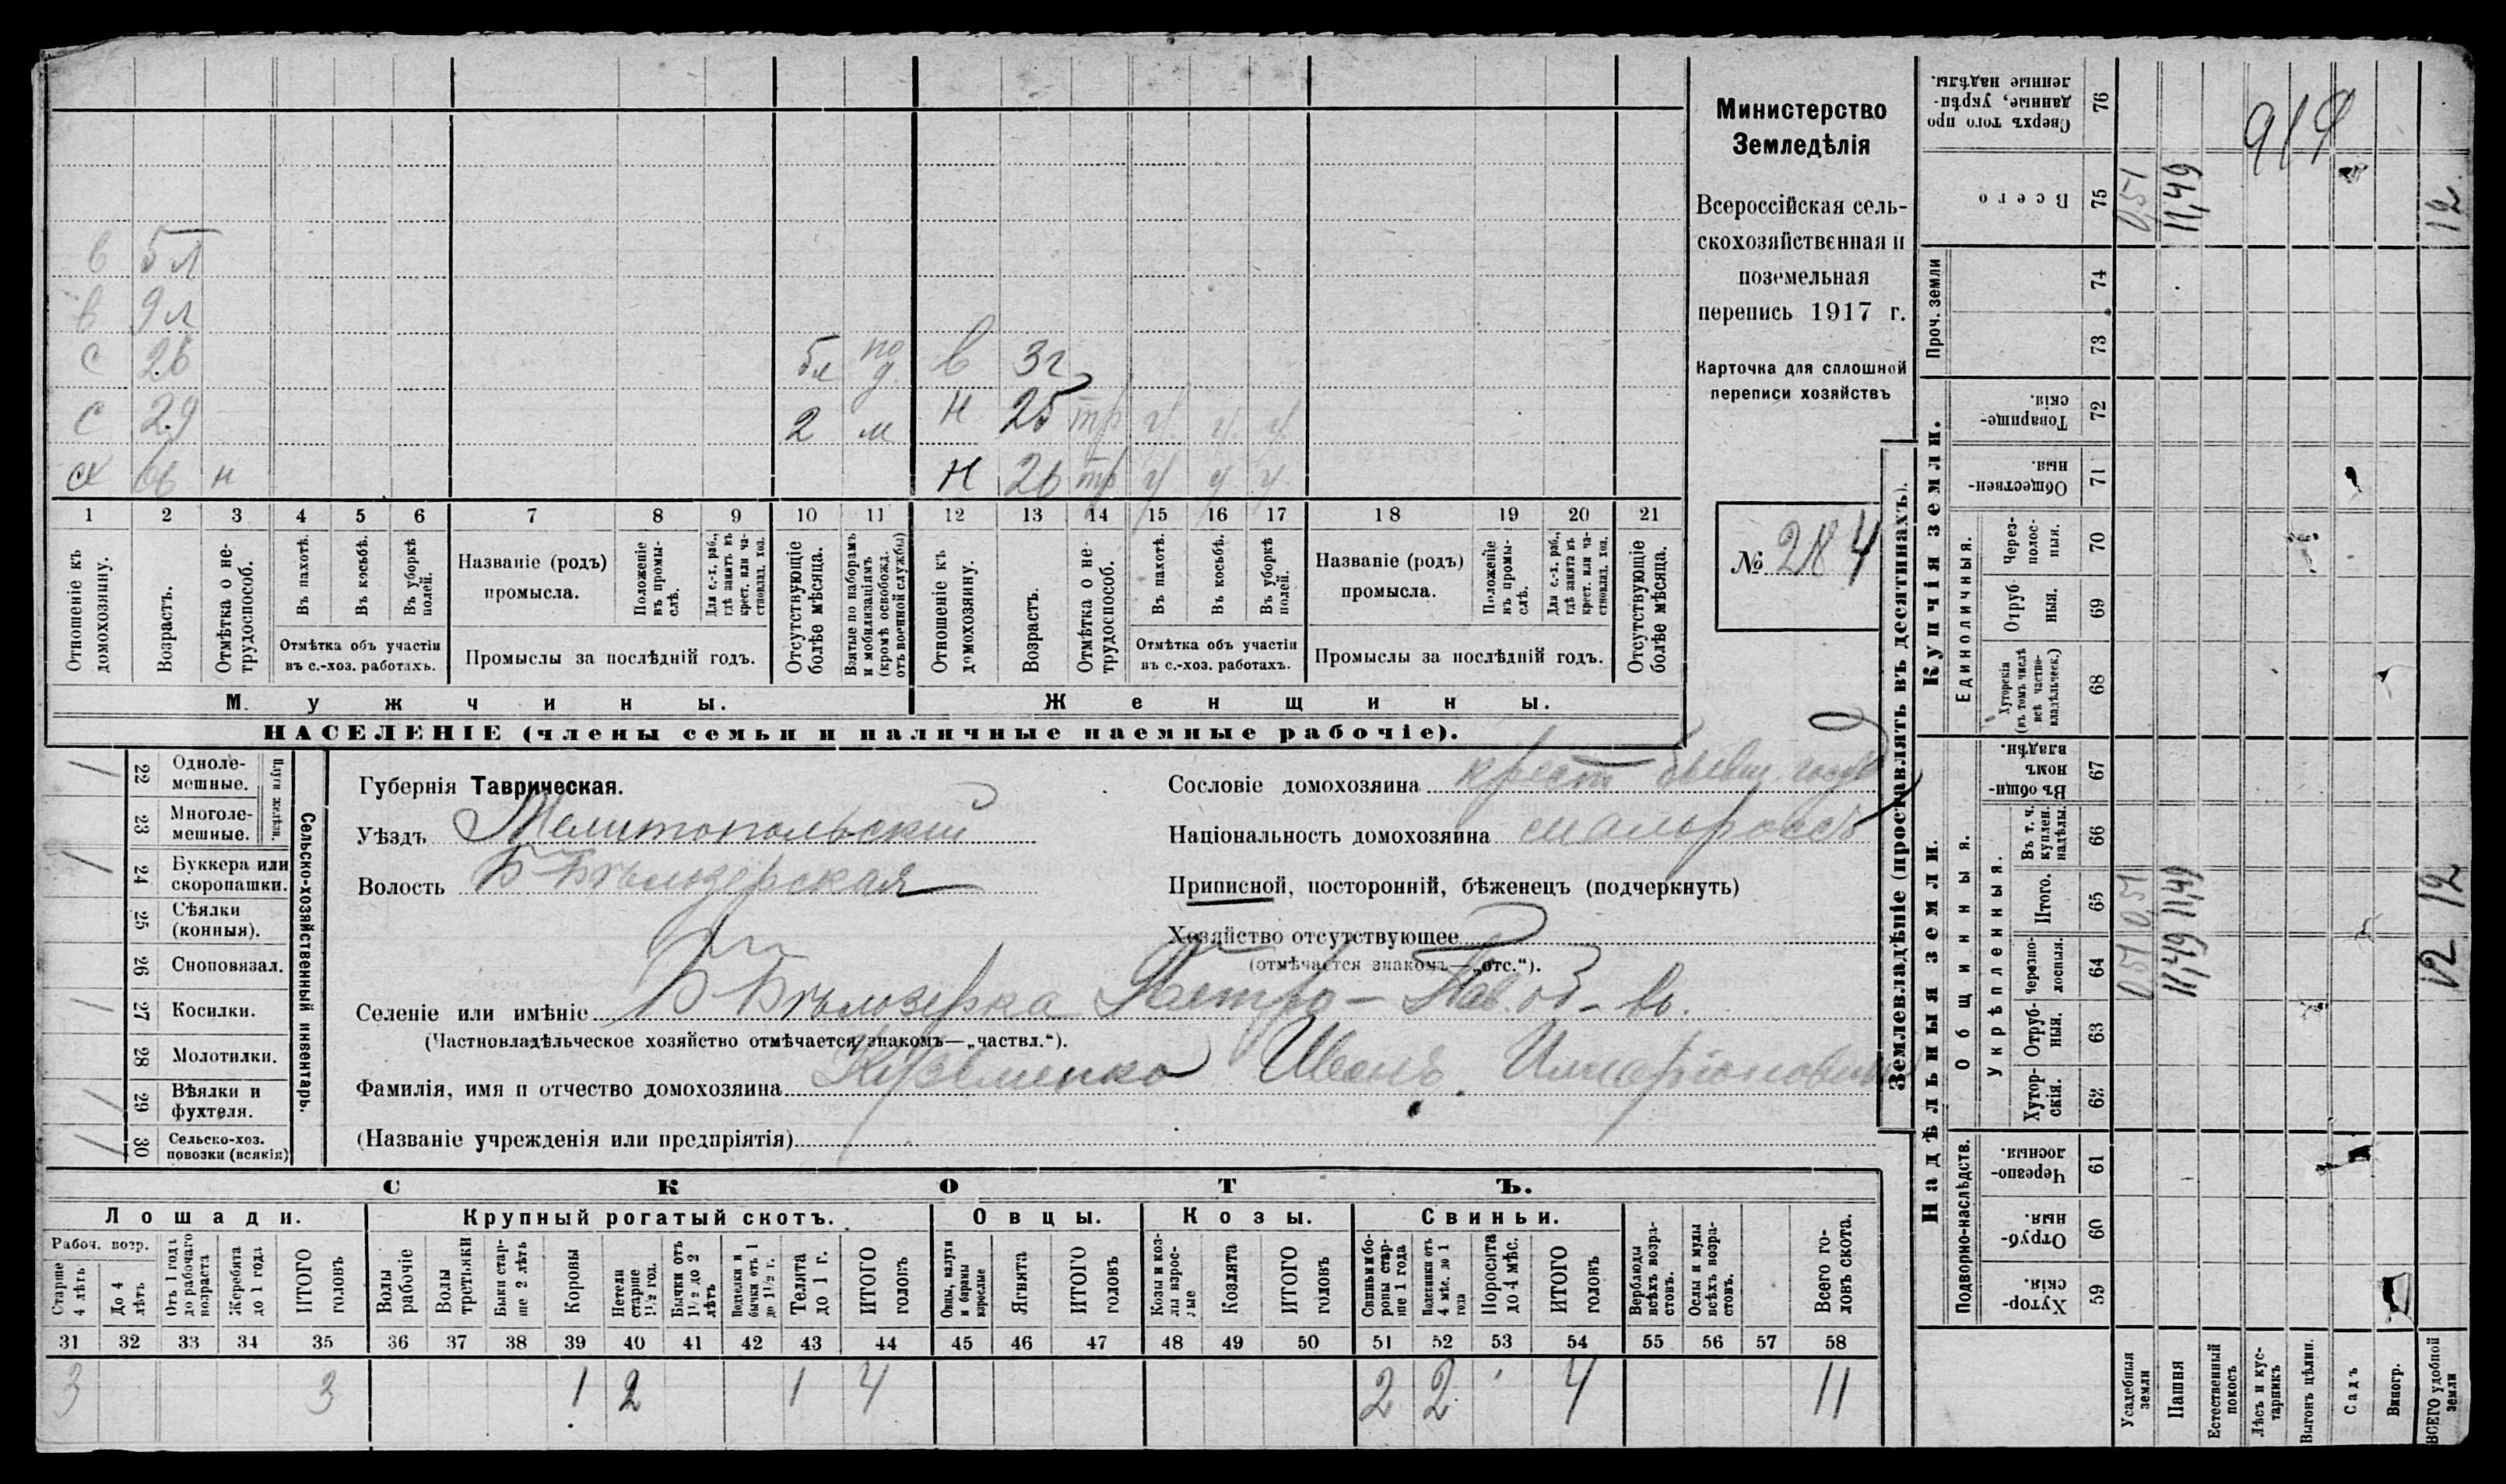 Министерство
Земледѣлія
Всероссійская сель-
скохозяйственная и
поземельная
перепись 1917 г.
Карточка для сплошной
переписи хозяйствъ
№ 284
в 5 л
в 9 л
с 26 5 л под в 3 г
с 29 2 м н 25 тр ч ч ч
сх 66 н н 26 тр ч ч ч
1 2 3 4 5 6 7 8 9 10 11 12 13 14 15 16 17 18 19 20 21
Отношеніе къ домохозяину.
Возрастъ.
Отмѣтка о не-трудоспособ.
Въ пахотѣ.
Въ косьбѣ.
Въ уборкѣ полей.
Отмѣтка объ участіи
въ с.-хоз. работахъ.
Названіе (родъ)
промысла.
Положеніе въ промы-слѣ.
Для с.-х. раб., гдѣ занятъ въ крест. или ча-стновлад. хоз.
Промыслы за послѣдній годъ.
Отсутствующіе болѣе мѣсяца.
Взятые по наборамъ и мобилизаціямъ (кромѣ освобожд. отъ военной службы)
Отношеніе къ домохозяину.
Возрастъ.
Отмѣтка о не-трудоспособ.
Въ пахотѣ.
Въ косьбѣ.
Въ уборкѣ полей.
Отмѣтка объ участіи
въ с.-хоз. работахъ.
Названіе (родъ)
промысла.
Положеніе въ промы-слѣ.
Для с.-х. раб., гдѣ занята въ крест. или ча-стновлад. хоз.
Промыслы за послѣдній годъ.
Отсутствующіе болѣе мѣсяца.
Мужчины. Женщины.
НАСЕЛЕНІЕ (члены семьи и наличные наемные рабочіе).
Сельско-хозяйственный инвентарь.
Плуги желѣзн.
/ 22 Одноле-мешные.
23 Многоле-мешные.
/ 24 Буккера или скоропашки.
25 Сѣялки (конныя).
26 Сноповязал.
/ 27 Косилки.
28 Молотилки.
/ 29 Вѣялки и фухтеля.
/ 30 Сельско-хоз. повозки (всякія)
Губернія Таврическая.
Уѣздъ Мелитопольскій
Волость Б Бѣлозерская
Сословіе домохозяина крест бывш. госуд
Національность домохозяина малоросъ
Приписной, посторонній, бѣженецъ (подчеркнуть)
Хозяйство отсутствующее
(отмѣчается знакомъ—„отс.“).
Селеніе или имѣніе Б Бѣлозерка Петро-Пав. об-во.
(Частновладѣльческое хозяйство отмѣчается знакомъ—„частвл.“).
Фамилія, имя и отчество домохозяина Кузьменко Иванъ Илларіоновичъ
(Названіе учрежденія или предпріятія)
СКОТЪ.
Лошади. Крупный рогатый скотъ. Овцы. Козы. Свиньи.
Рабоч. возр.
Старше 4 лѣтъ
До 4 лѣтъ
Отъ 1 года до рабочаго возраста
Жеребята до 1 года
ИТОГО головъ
Волы рабочіе
Волы третьяки
Быки стар-ше 2 лѣтъ
Коровы
Нетели старше 1½ год.
Бычки отъ 1½ до 2 лѣтъ
Подтелки и бычки отъ 1 до 1½ г.
Телята до 1 г.
ИТОГО головъ
Овцы, валухи и бараны взрослые
Ягнята
ИТОГО головъ
Козы и коз-лы взрос-лые
Козлята
ИТОГО головъ
Свиньи и бо-ровы стар-ше 1 года
Подсвинки отъ 4 мѣс. до 1 года
Поросята до 4 мѣс.
ИТОГО головъ
Верблюды всѣхъ возра-стовъ.
Ослы и мулы всѣхъ возра-стовъ.
Всего го-ловъ скота.
31 32 33 34 35 36 37 38 39 40 41 42 43 44 45 46 47 48 49 50 51 52 53 54 55 56 57 58
3 3 1 2 1 4 2 2 4 11
Землевладѣніе (проставлять въ десятинахъ).
Надѣльныя земли.
Купчія земли.
Проч. земли
Подворно-наслѣдств.
Общинныя.
Укрѣпленныя.
Единоличныя.
Хутор-скія. 59
Отруб-ныя. 60
Черезпо-лосныя. 61
Хутор-скія. 62
Отруб-ныя. 63
Черезпо-лосныя. 64
Итого. 65
Въ т. ч. куплен. надѣлы. 66
Въ общи-номъ владѣн. 67
Хуторскія (въ томъ числѣ всѣ частно-владѣльческ.) 68
Отруб-ныя. 69
Через-полос-ныя. 70
Обществен-ныя. 71
Товарище-скія. 72
73
74
Всего 75
Сверхъ того про-данные, укрѣп-ленные надѣлы. 76
Усадебныя земли 0,51 0,51 0,51
Пашня 11,49 11,49 11,49
Естественный покосъ
Лѣсъ и кус-тарникъ
Выгонъ цѣлин.
Садъ
Виногр.
ВСЕГО удобной земли 12 12 12
919